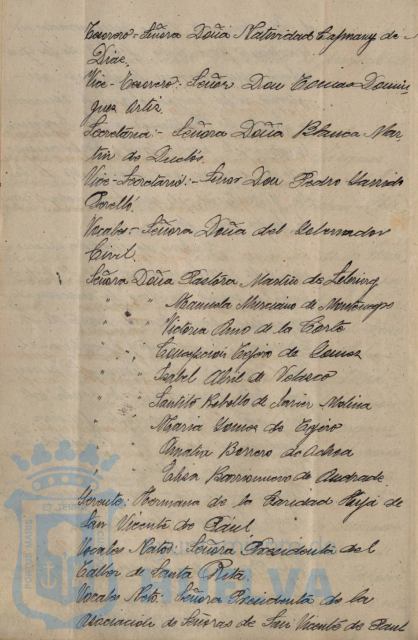 Tesorero = Señora Doña Natividad Capmany de
Diaz.
Vice-Tesorero: Señor Don Tomas Domin-
guez Ortiz.
Secretaria:- Señora Doña Blanca Mar-
tin de Duclós.
Vice-Secretario: - Señor Don Pedro Garrido
Perelló.
Vocales = Señora Doña del Gobernador
Civil.
Señora Doña Pastora Martin de
" " Manuela Murciano de
" " Victoria Amo de la Corte
" " Concepcion Tejero de Gomez
" " Isabel Abril de Velasco
" " Rebollo de Javier Molina
" " Maria Gomez de Tejero
" " Amalia Borrero de Ochoa
" " Elisa Barrionuevo de Andrade
Gerente: Hermana de la Caridad Hija de
San Vicente de Paul.
Vocales Natos: Señora Presidenta del
Taller de Santa Rita.
Vocales Nato: Señora Presidenta de la
Asociacion de Señoras de San Vicente de Paul